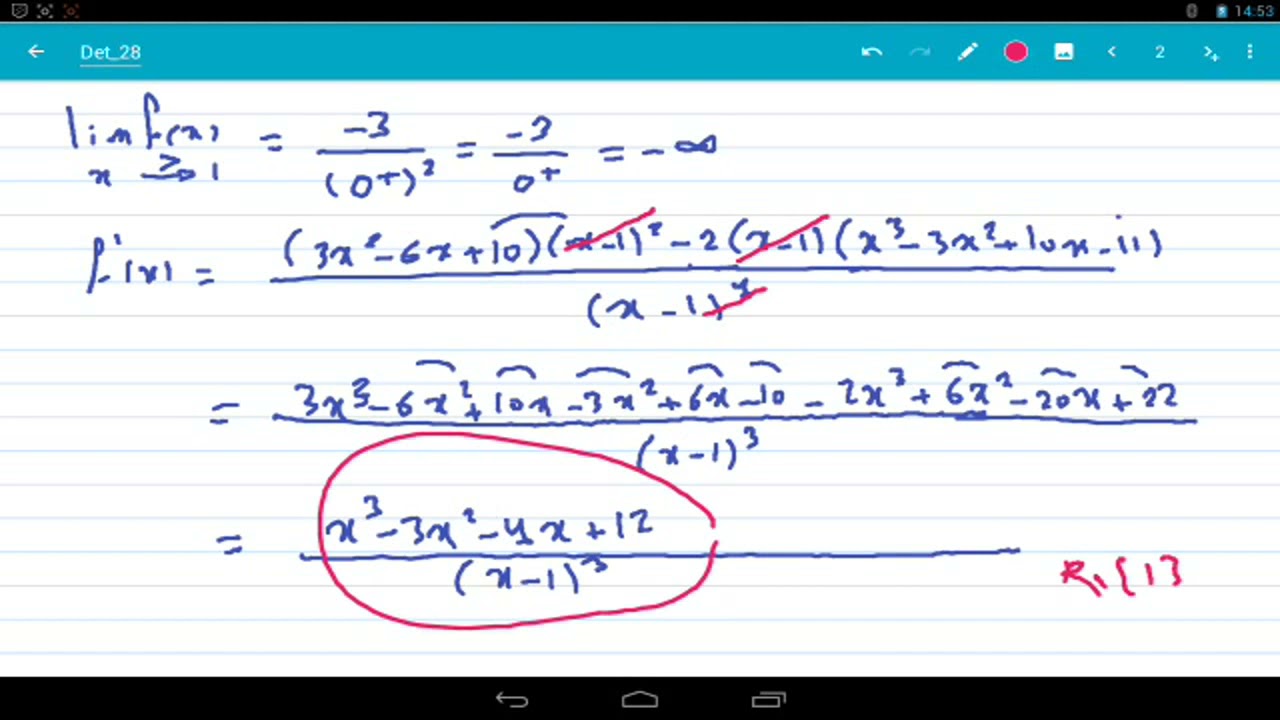 14:53
Det_28
2
lim f(x) = -3 / (0⁺)² = -3 / 0⁺ = -∞
x →> 1
f'(x) = (3x² - 6x + 10)(x-1)² - 2(x-1)(x³ - 3x² + 10x - 11)
(x - 1)⁴
= 3x³ - 6x² + 10x - 3x² + 6x - 10 - 2x³ + 6x² - 20x + 22
(x-1)³
= x³ - 3x² - 4x + 12
(x-1)³
R\{1}